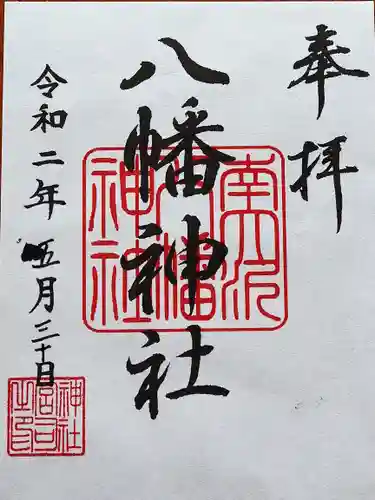 奉拝
八幡神社
令和二年五月三十日
南
八幡
神社
神社
宮司
之印